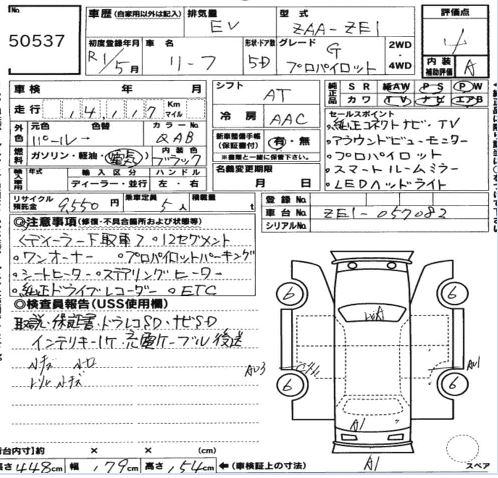 50537
車歴 (自家用以外は記入) 排気量 EV 型式 ZAA-ZE1 評価点
初度登録年月 R1/5月 車名 リーフ 形状・ドア数 5D グレード G プロパイロット 2WD・4WD 内装補助評価 A
車検 年 月 シフト AT 純正品 SR 純AW PS PW
カワ TV ナビ エアB
走行 14,117 Km マイル 冷房 AAC セールスポイント
・純正コネクトナビ・TV
外色 元色 パール 色替 カラーNo. QAB 新車整備手帳(保証書付) 有・無 ・アラウンドビューモニター
※書類と一緒に保管下さい ・プロパイロット
燃料 ガソリン・軽油・(電気) 内装色 ブラック ・スマートルームミラー
輸入車 年式 輸入区分 ハンドル 名義変更期限 ・LEDヘッドライト
ディーラー・並行 左・右 月 日
リサイクル預託金 9,550円 乗車定員 5人 積載量 t 登録No.
車台No. ZE1-057082
シリアルNo.
◎注意事項(修復・不具合箇所および状態等)
<ディーラー下取車> ・12セグメント
・ワンオーナー ・プロパイロットパーキング
・シートヒーター ・ステアリングヒーター
・純正ドライブレコーダー ・ETC
◎検査員報告(USS使用欄)
取説・保証書・ドラレコSD・ナビSD
インテリキー1ケ・充電ケーブル後送
6 6
WA
AU3
6 6
A1
A1
A1
スペア
(荷台内寸)約 × × (cm)
長さ 448cm 幅 179cm 高さ 154cm ←(車検証上の寸法)